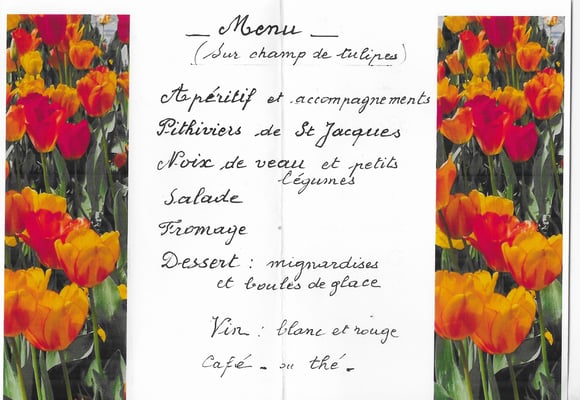 _ Menu _
(Sur champ de tulipes)
Apéritif et accompagnements
Pithiviers de St Jacques
Noix de veau et petits
légumes
Salade
Fromage
Dessert : mignardises
et boules de glace
Vin : blanc et rouge
Café - ou thé -